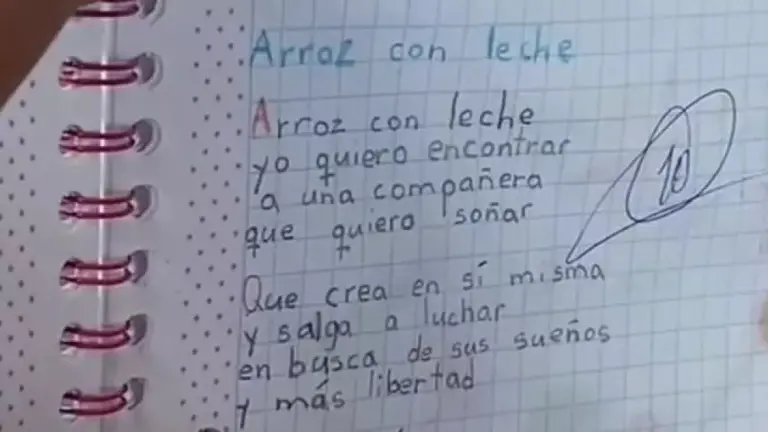 Arroz con leche
Arroz con leche
yo quiero encontrar
a una compañera
que quiero soñar
10
Que crea en sí misma
y salga a luchar
en busca de sus sueños
y más libertad